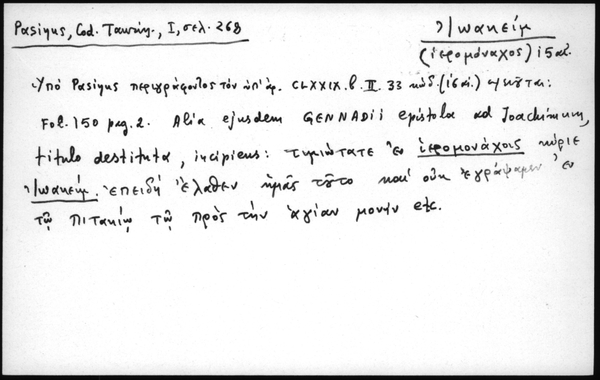 Pasinus, Cod. Ταυρίν., I, σελ. 268
Ἰωακείμ
(ἱερομόναχος) 15 αἰ.
Ὑπό Pasinus περιγράφοντος τὸν ὑπ' ἀρ. CLXXIX. b. II. 33 κώδ. (16 αἰ.)
Fol. 150 pag. 2. Alia ejusdem GENNADII epistola ad Joachimum,
titulo destituta, incipiens: τιμιώτατε ἐν ἱερομονάχοις κύριε
Ἰωακείμ. ἐπειδή ἔλαθεν ἡμᾶς τοῦτο καί οὐκ ἐγράψαμεν ἐν
τῷ πιτακίῳ τῷ πρὸς τὴν ἁγίαν μονὴν etc.